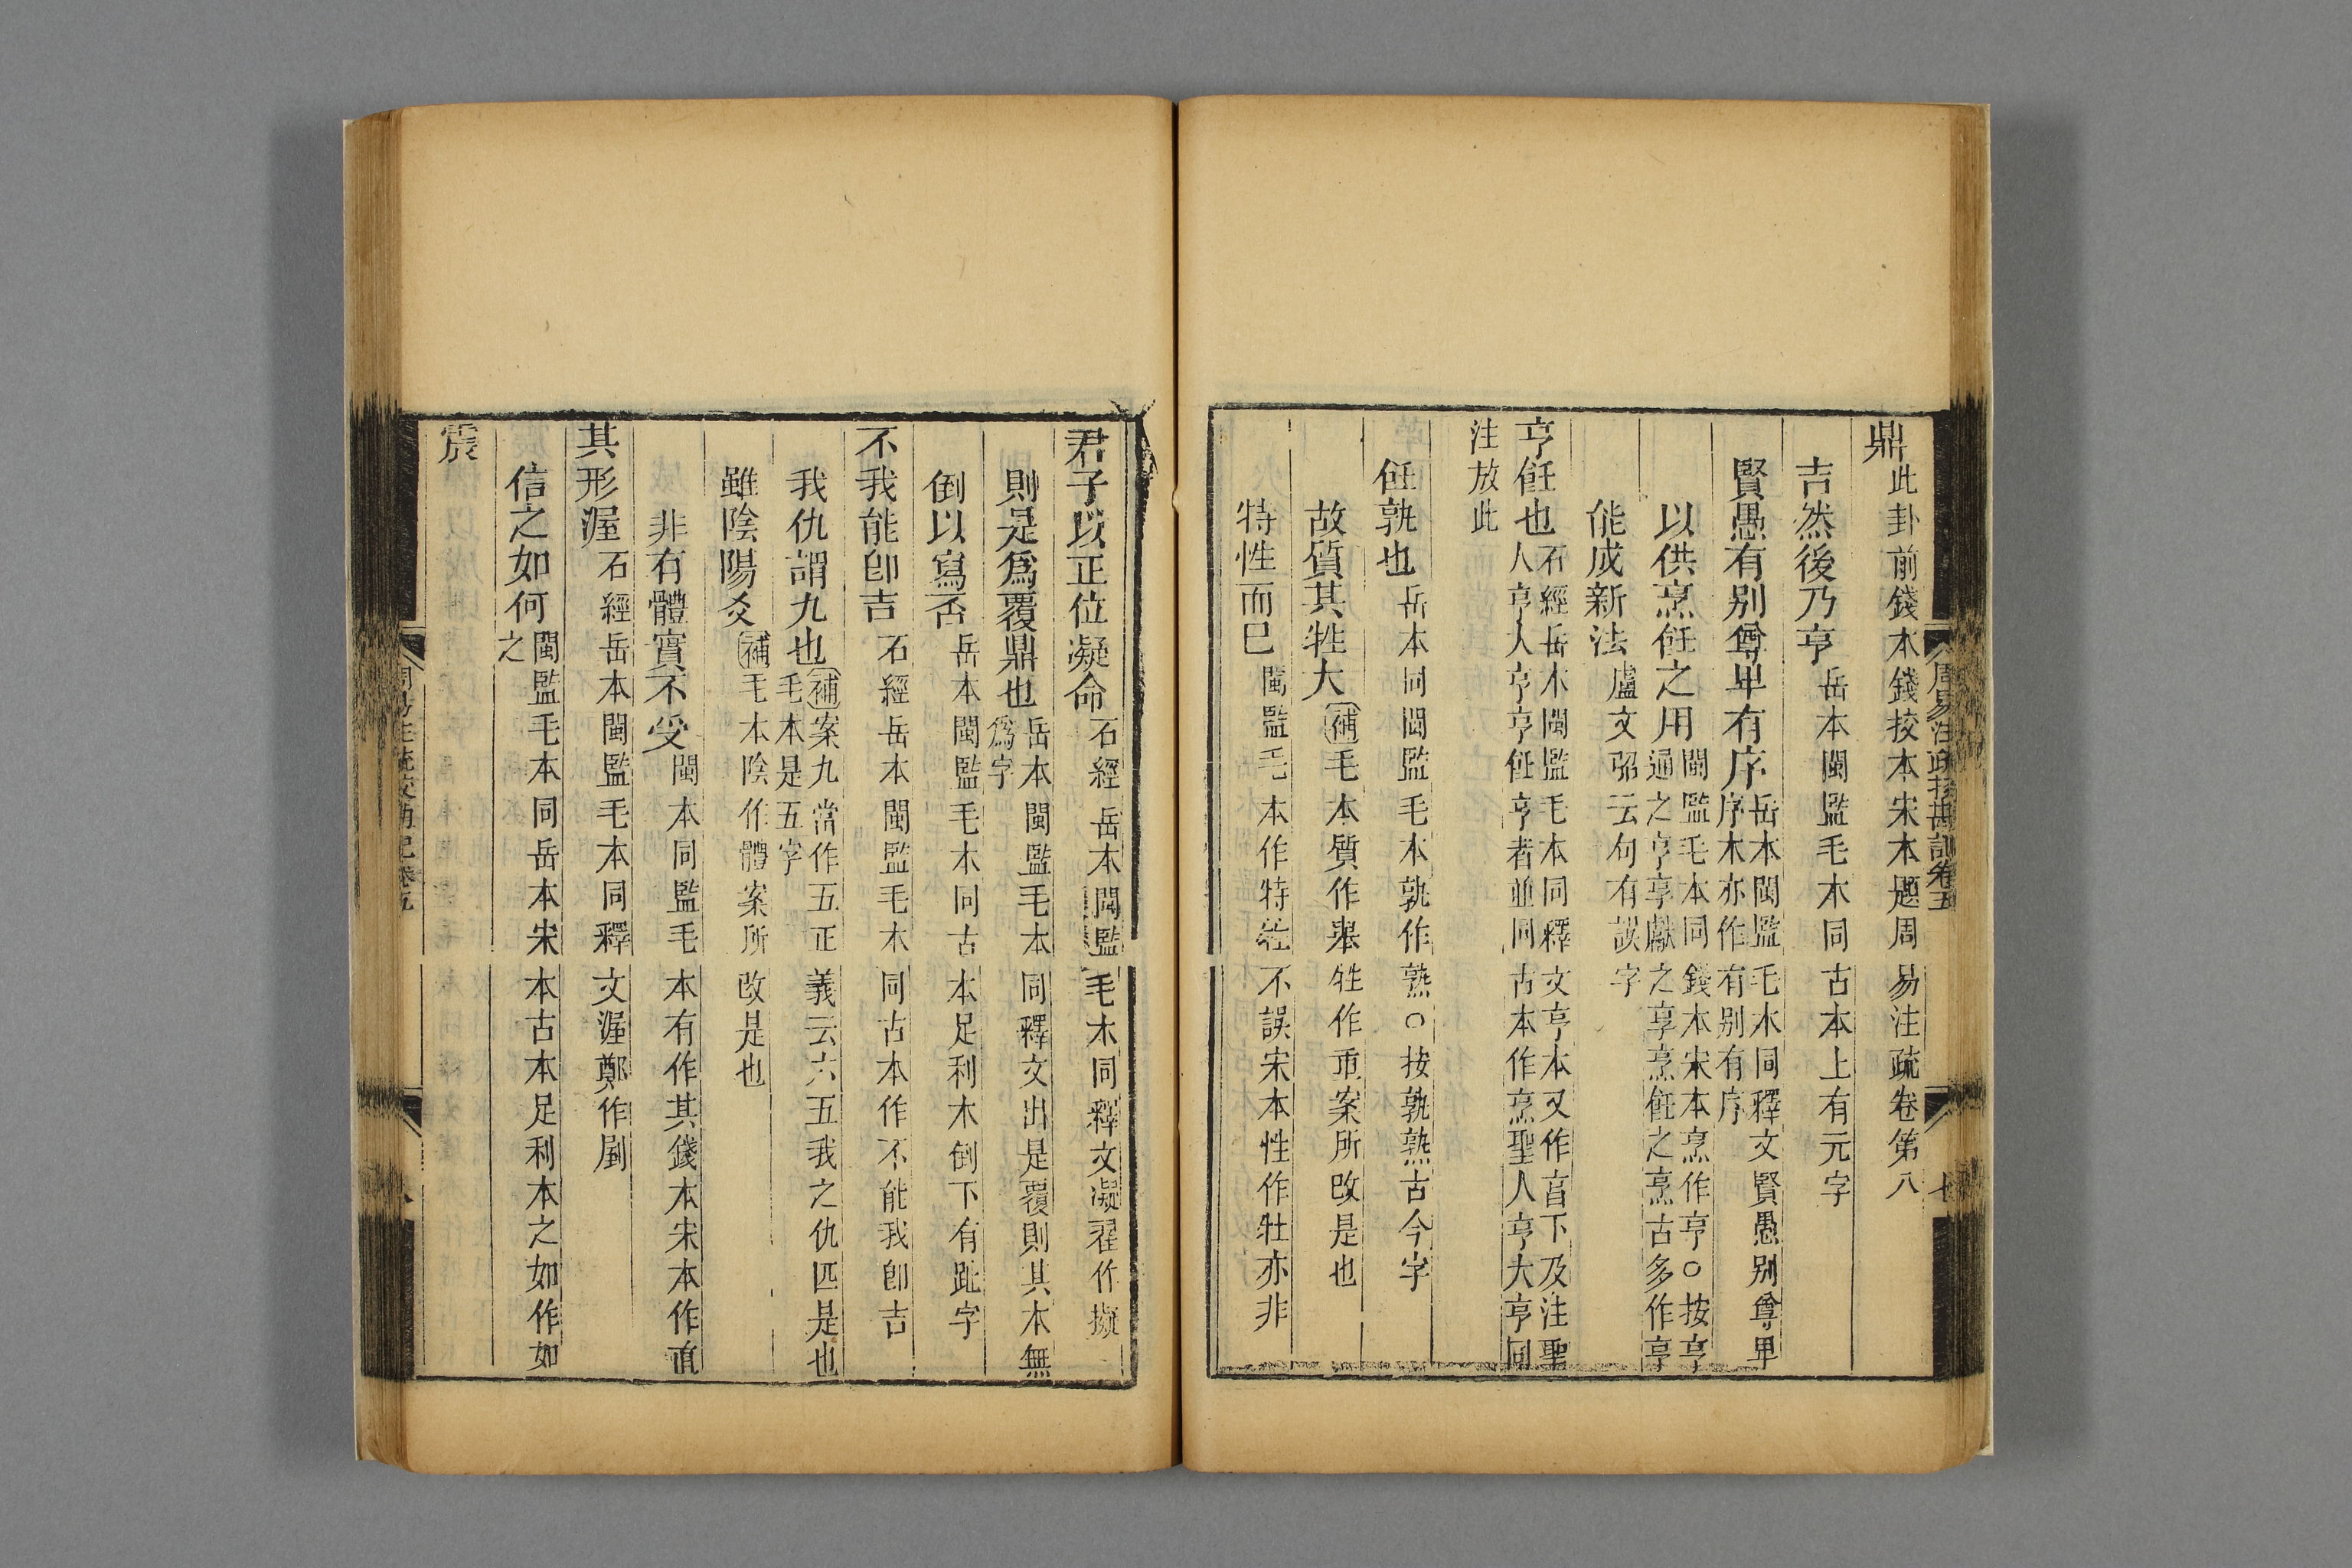 鼎此卦前錢本錢挍本宋本題周易注疏卷第八
吉然後乃亨岳本閩監毛本同古本上有元字
賢愚有别尊卑有序岳本閩監毛本同釋文賢愚别尊卑序本亦作有别有序
以供烹飪之用閩監毛本同錢本宋本烹作亨○按亨通之亨享獻之享烹飪之烹古多作亨
能成新法盧文弨云句有誤字
亨飪也石經岳本閩監毛本同釋文亨本又作亯下及注聖人亨人亨亨飪亨者並同古本作烹聖人亨大亨同
注放此
飪孰也岳本同閩監毛本孰作熟○按孰熟古今字
故質其牲大補毛本質作舉牲作重案所改是也
特性而已閩監毛本作特牲不誤宋本性作牡亦非
周易注疏挍勘記卷五
七
君子以正位凝命石經岳本閩監毛本同釋文凝翟作擬
則是爲覆鼎也岳本閩監毛本同釋文出是覆則其本無爲字
倒以寫否岳本閩監毛本同古本足利本倒下有趾字
不我能卽吉石經岳本閩監毛本同古本作不能我卽吉
我仇謂九也補案九當作五正義云六五我之仇匹是也毛本是五字
雖陰陽爻補毛本陰作體案所改是也
非有體實不受閩本同監毛本有作其錢本宋本作直
其形渥石經岳本閩監毛本同釋文渥鄭作剭
信之如何閩監毛本同岳本宋本古本足利本之如作如之
震